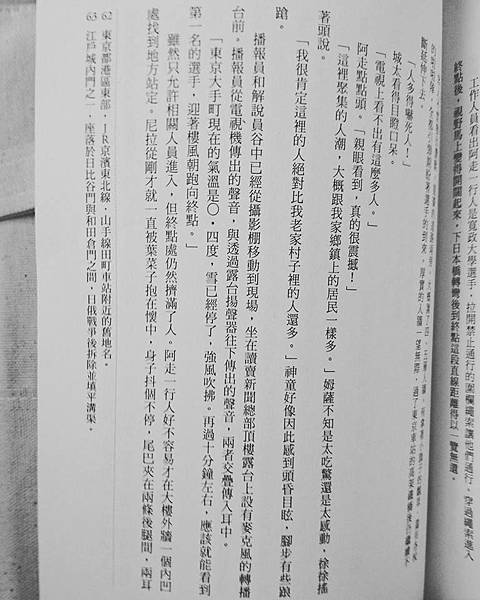 工作人員看出阿走一行人是寬政大學選手，拉開禁止通行的圍欄繩索讓他們通行。穿過繩索進入
終點後，視野馬上變得開闊起來，下日本橋轉彎後到終點這段直線距離得以一覽無遺。
斷延伸下去。
「人多得嚇死人！」
城太看得目瞪口呆。
「電視上看不出有這麼多人。」
阿走點點頭。「親眼看到，真的很震撼！」
「這裡聚集的人潮，大概跟我家鄉鎮上的居民一樣多。」姆薩不知是太吃驚還是太感動，徐徐搖
著頭說。
「我很肯定這裡的人絕對比我老家村子裡的人還多。」神童好像因此感到頭昏目眩，腳步有些踉
蹌。
播報員和解說員谷中已經從攝影棚移動到現場，坐在讀賣新聞總部頂樓露台上設有麥克風的轉播
台前。播報員從電視機傳出的聲音，與透過露台揚聲器往下傳出的聲音，兩者交疊傳入耳中。
「東京大手町現在的氣溫是〇．四度，雪已經停了，強風吹拂。再過十分鐘左右，應該就能看到
第一名的選手，迎著樓風朝跑向終點。」
雖然只允許相關人員進入，但終點處仍然擠滿了人。阿走一行人好不容易才在大樓外牆一個內凹
處找到地方站定。尼拉從剛才就一直被葉菜子抱在懷中，身子抖個不停，尾巴夾在兩條後腿間，兩耳
62 東京都港區東部，JR京濱東北線，山手線田町車站附近的舊地名。
63 江戶城內門之一，座落於日比谷門與和田倉門之間，日俄戰爭後拆除並填平溝渠。